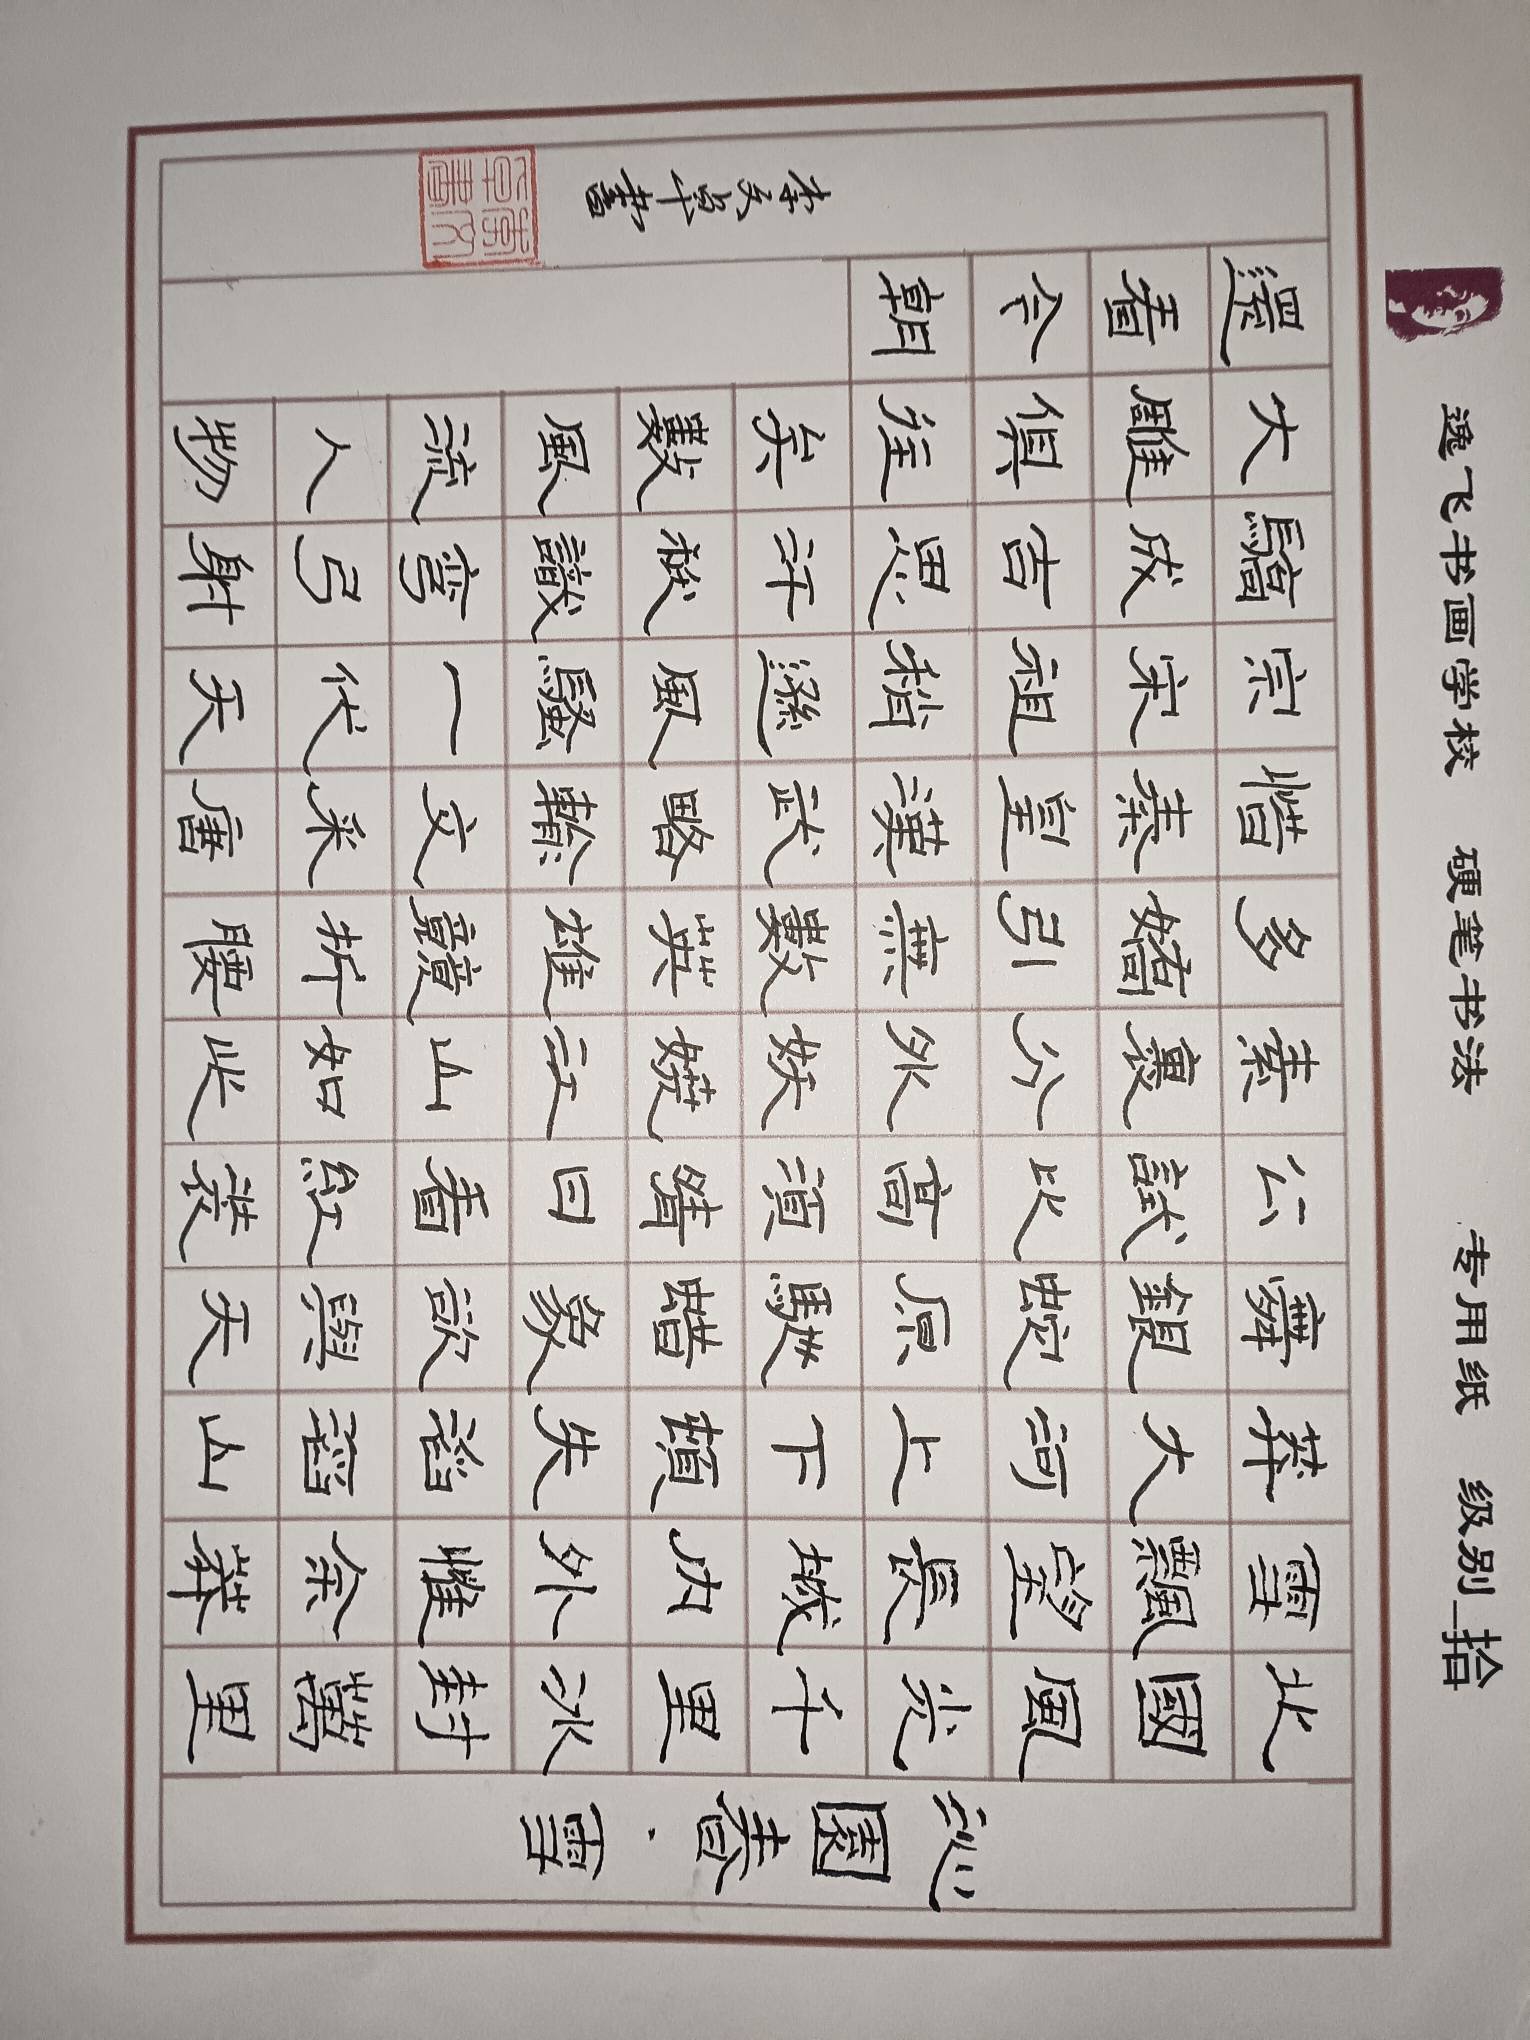 逸飞书画学校 硬笔书法 专用纸 级别 拾
沁園春·雪
北國風光千里冰封萬里
雪飄望長城内外惟余莽
莽大河上下頓失滔滔山
舞銀蛇原馳蠟象欲與天
公試比高須晴日看紅裝
素裹分外妖嬈江山如此
多嬌引無數英雄競折腰
惜秦皇漢武略輸文采唐
宗宋祖稍遜風騷一代天
驕成吉思汗祗識彎弓射
大雕俱往矣數風流人物
還看今朝
李文書